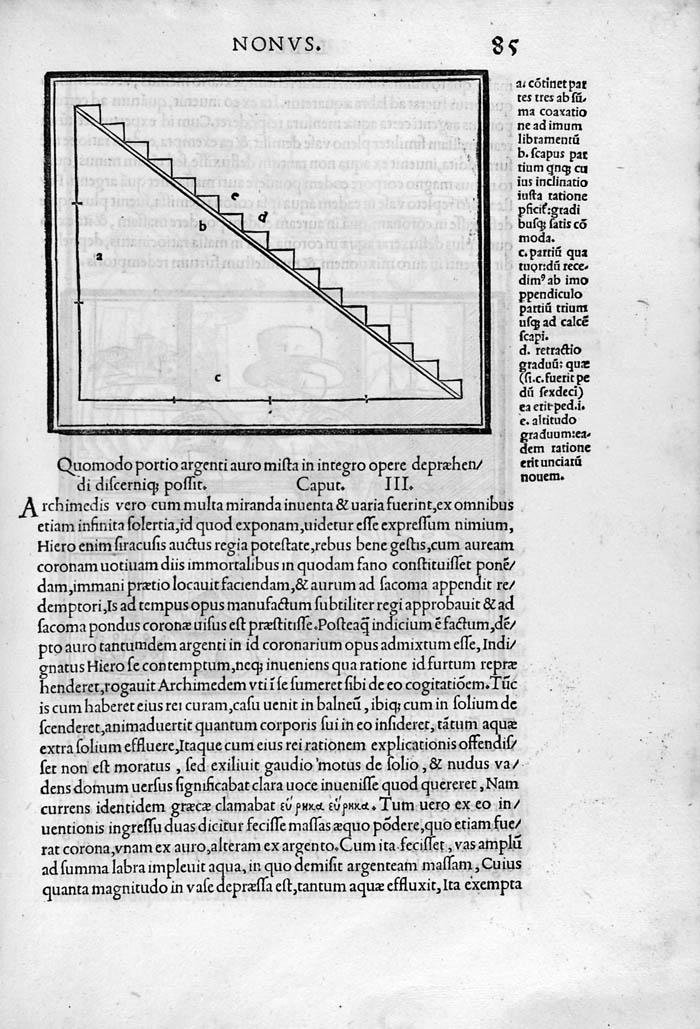 NONVS. 85
e
d
b
a
c
a. cõtinet par
tes tres ab sũ-
ma coaxatio
ne ad imum
libramentũ
b. scapus par
tium qnq; cu
ius inclinatio
iusta ratione
pficit̃: gradi
busq; satis cõ
moda.
c. partiũ qua
tuor: dũ rece-
dim⁹ ab imo
ppendiculo
partiũ trium
usq; ad calcẽ
scapi.
d. retractio
graduũ: quæ
(si.c.fuerit pe
dũ sexdeci)
ea erit ped.i.
e. altitudo
graduum: ea-
dem ratione
erit unciarũ
nouem.
Quomodo portio argenti auro mista in integro opere depræhen/
di discerniq; possit. Caput. III.
Archimedis vero cum multa miranda inuenta & uaria fuerint, ex omnibus
etiam infinita solertia, id quod exponam, uidetur esse expressum nimium,
Hiero enim siracusis auctus regia potestate, rebus bene gestis, cum auream
coronam uotiuam diis immortalibus in quodam fano constituisset ponẽ/
dam, immani prætio locauit faciendam, & aurum ad sacoma appendit re/
demptori, Is ad tempus opus manufactum subtiliter regi approbauit & ad
sacoma pondus coronæ uisus est præstitisse. Posteaq̃ indicium ẽ factum, dẽ/
pto auro tantumdem argenti in id coronarium opus admixtum esse, Indi/
gnatus Hiero se contemptum, neq; inueniens qua ratione id furtum repræ
henderet, rogauit Archimedem vti ĩ se sumeret sibi de eo cogitatiõem. Tũc
is cum haberet eius rei curam, casu uenit in balneũ, ibiq; cum in solium de
scenderet, animaduertit quantum corporis sui in eo insideret, tãtum aquæ
extra solium effluere, Itaque cum eius rei rationem explicationis offendis/
set non est moratus, sed exiliuit gaudio motus de solio, & nudus va/
dens domum uersus significabat clara uoce inuenisse quod quereret, Nam
currens identidem græcæ clamabat εὕρηκα εὕρηκα. Tum uero ex eo in/
uentionis ingressu duas dicitur fecisse massas æquo põdere, quo etiam fue/
rat corona, vnam ex auro, alteram ex argento. Cum ita fecisset, vas amplũ
ad summa labra impleuit aqua, in quo demisit argenteam massam, Cuius
quanta magnitudo in vase depræssa est, tantum aquæ effluxit, Ita exempta